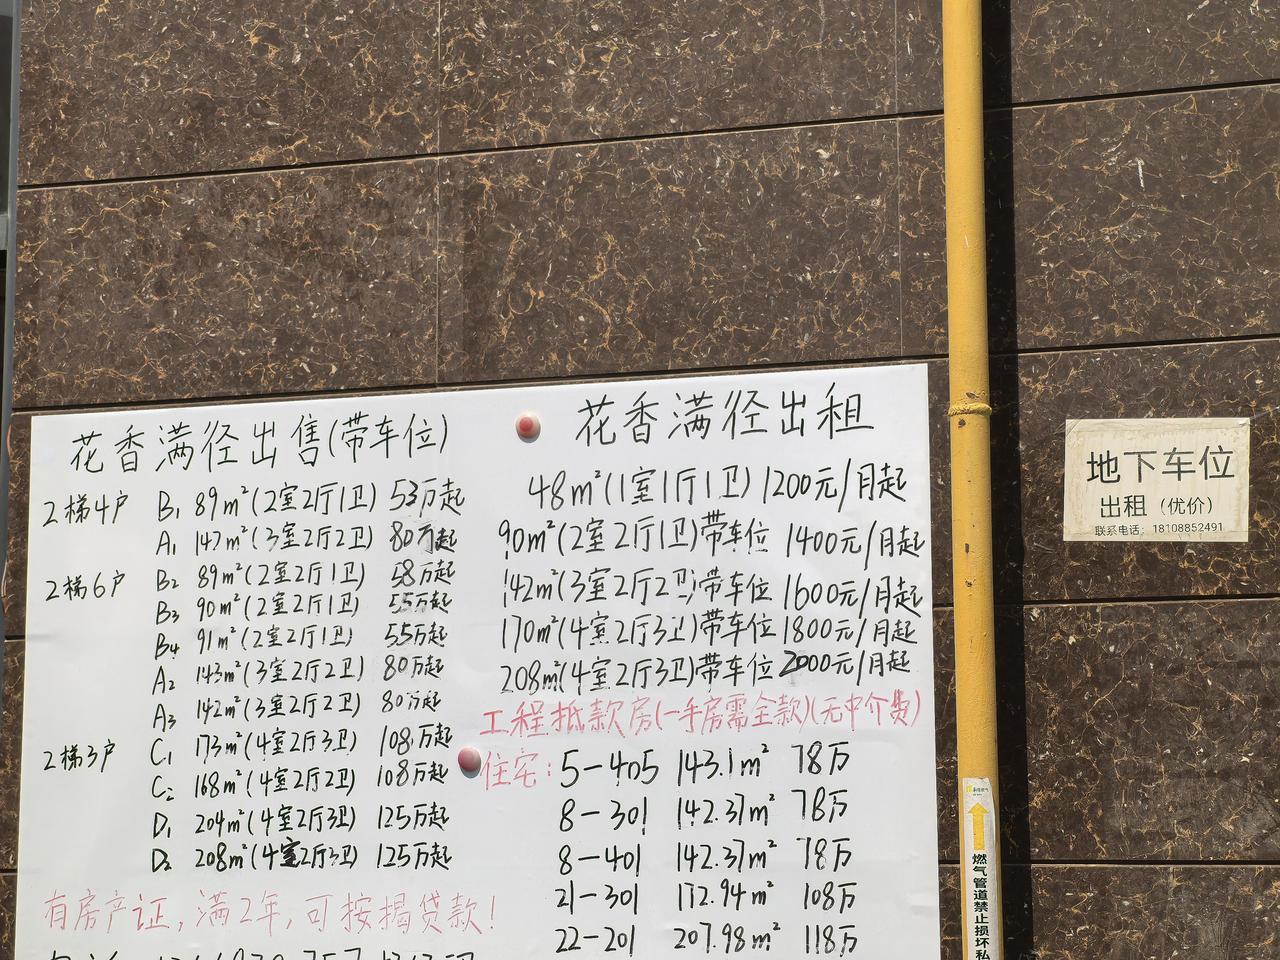 花香满径出售(带车位)
2梯4户 B₁ 89m²(2室2厅1卫) 53万起
A₁ 142m²(3室2厅2卫) 80万起
2梯6户 B₂ 89m²(2室2厅1卫) 58万起
B₃ 90m²(2室2厅1卫) 55万起
B₄ 91m²(2室2厅1卫) 55万起
A₂ 143m²(3室2厅2卫) 80万起
A₃ 142m²(3室2厅2卫) 80万起
2梯3户 C₁ 173m²(4室2厅3卫) 108万起
C₂ 168m²(4室2厅2卫) 108万起
D₁ 204m²(4室2厅3卫) 125万起
D₂ 208m²(4室2厅3卫) 125万起
有房产证,满2年,可按揭贷款!
花香满径出租
48m²(1室1厅1卫) 1200元/月起
90m²(2室2厅1卫)带车位 1400元/月起
142m²(3室2厅2卫)带车位 1600元/月起
170m²(4室2厅3卫)带车位 1800元/月起
208m²(4室2厅3卫)带车位 2000元/月起
工程抵款房(一手房需全款)(无中介费)
住宅: 5-405 143.1m² 78万
8-301 142.37m² 78万
8-401 142.37m² 78万
21-301 172.94m² 108万
22-201 207.98m² 118万
地下车位
出租(优价)
联系电话: 18108852491
燃气管道禁止损坏私